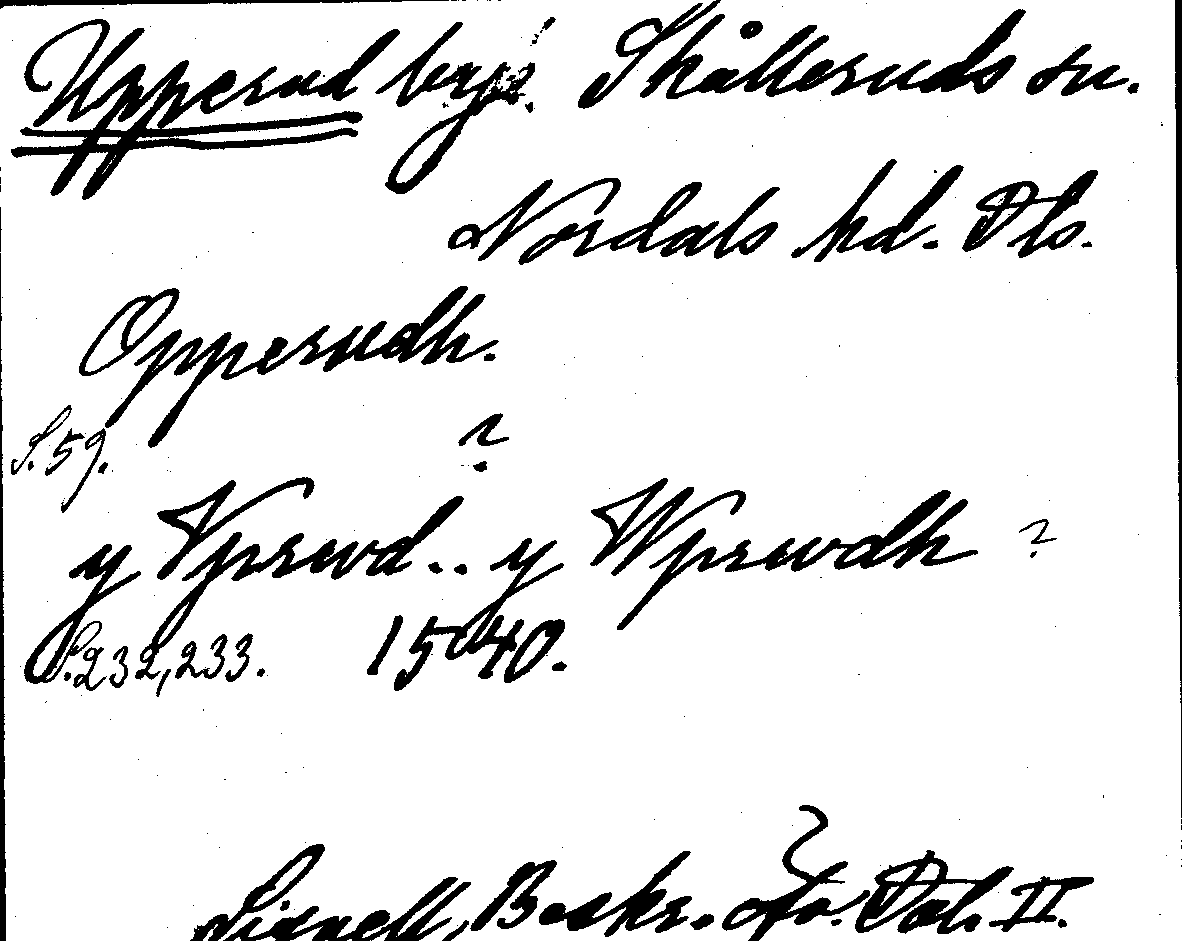 Upperud by. Skålleruds sn.
Nordals hd. Dls.
Opperudh.
S. 59. ?
y Vprwd.. y Wprwdh ?
S. 232, 233. 1540.
Lignell, Beskr. öfv. Dal. II.